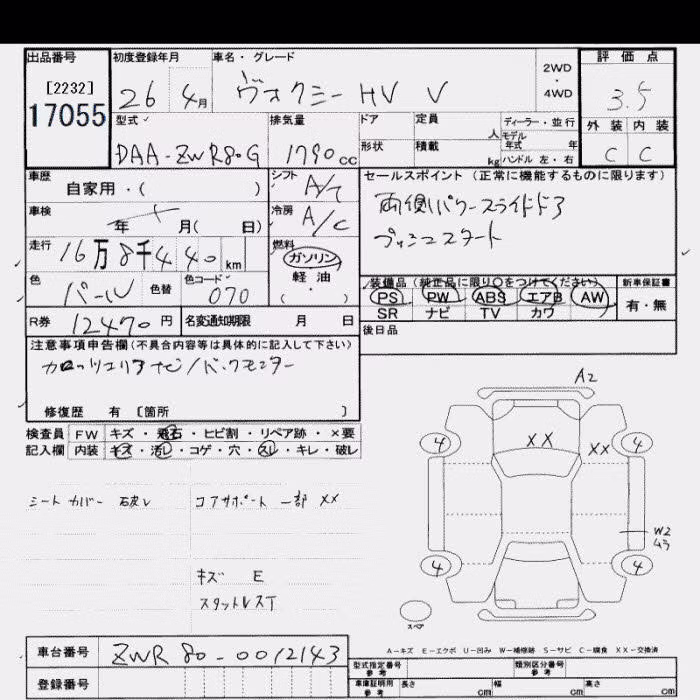 出品番号 初度登録年月 車名・グレード 2WD・4WD 評価点
[2232]
17055 26 4月 ヴォクシーHV V 3.5
型式 排気量 ドア 定員 人 ディーラー・並行 外装 内装
モデル年式 年
DAA-ZWR80G 1790cc 形状 積載 kg ハンドル 左・右 C C
車歴 シフト セールスポイント(正常に機能するものに限ります)
自家用・( ) A/T 両側パワースライドドア
車検 冷房
年 月( 日) A/C プッシュスタート
走行 16万8千440km 燃料
ガソリン
色 パール 色替 色コード 070 軽油
・( )
装備品(純正品に限り○をつけてください) 新車保証書
PS PW ABS エアB AW 有・無
SR ナビ TV カワ
R券 12470円 名変通知期限 月 日 後日品
注意事項申告欄(不具合内容等は具体的に記入して下さい)
カロッツェリアナビ/バックモニター
修復歴 有 [箇所 ]
検査員 FW キズ・飛石・ヒビ割・リペア跡・×要
記入欄 内装 キズ・汚レ・コゲ・穴・スレ・キレ・破レ
A2
XX XX
4 4
シートカバー コアサポート 一部 XX
W2
ムラ
4 4
キズ E
スペア
A-キズ E-エクボ U-凹み W-補修跡 S-サビ C-腐食 XX-交換済
車台番号 ZWR80-0012143
型式指定番号 参考 類別区分番号 参考
登録番号 車庫証明用 参考 長さ cm 幅 cm 高さ cm